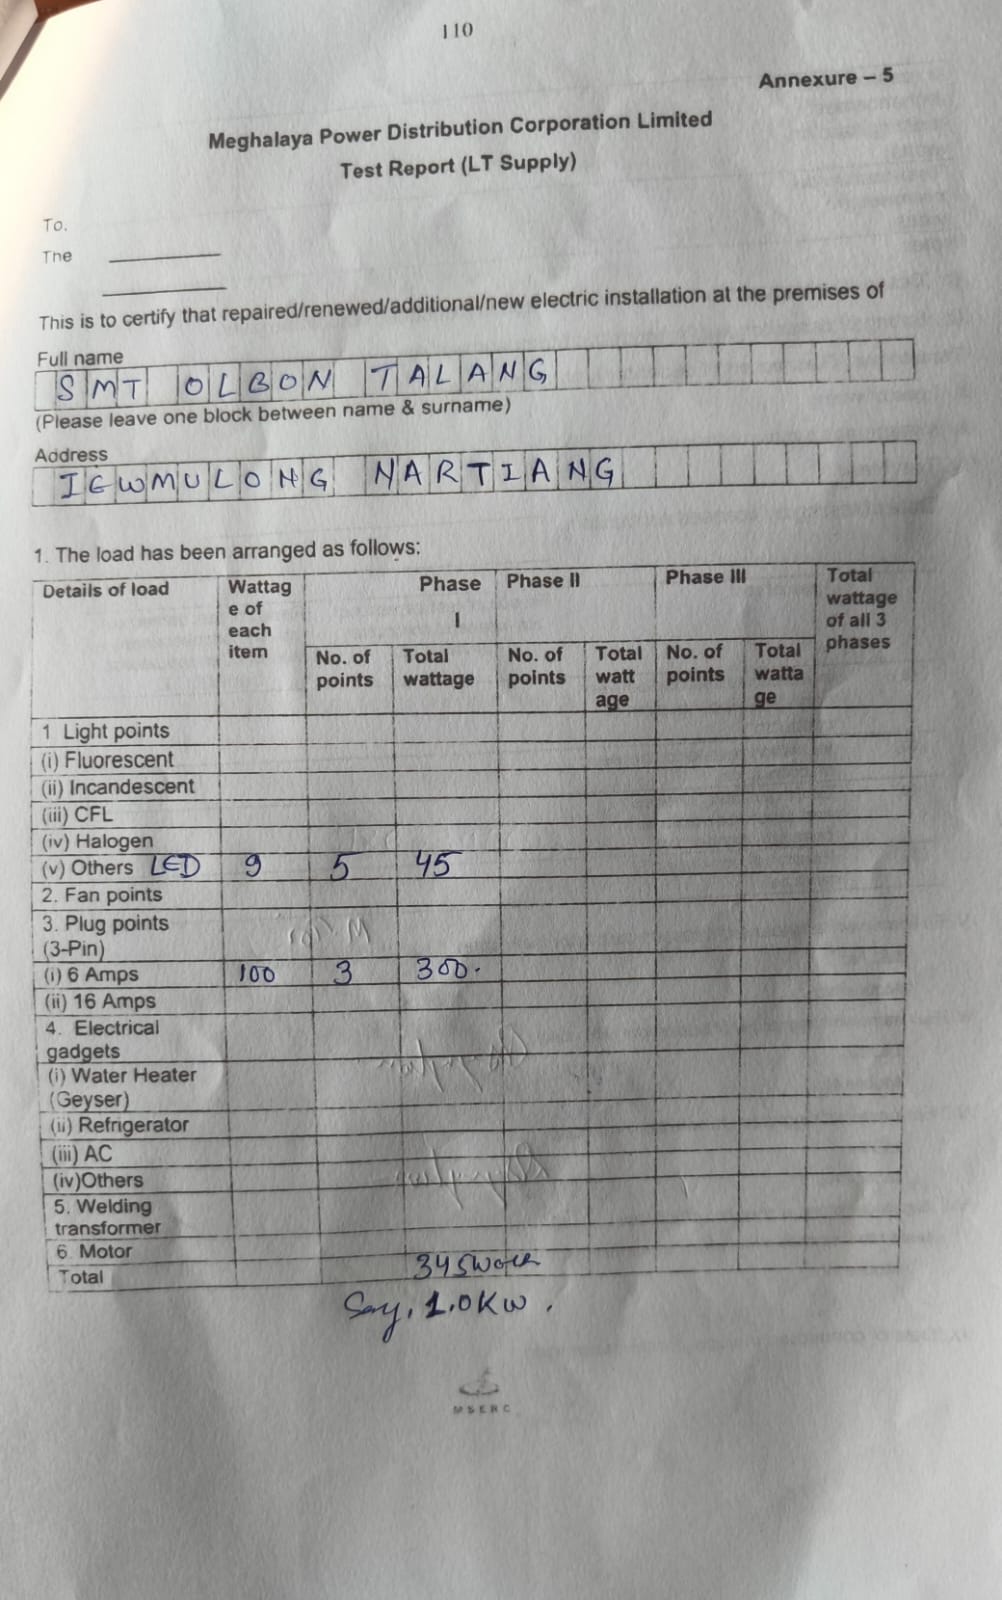 110
Annexure – 5
Meghalaya Power Distribution Corporation Limited
Test Report (LT Supply)
To.
The
This is to certify that repaired/renewed/additional/new electric installation at the premises of
Full name
SMT OLBON TALANG
(Please leave one block between name & surname)
Address
IEWMULONG NARTIANG
1. The load has been arranged as follows:
Details of load Wattag e of each item Phase I Phase II Phase III Total wattage of all 3 phases
No. of points Total wattage No. of points Total watt age No. of points Total watta ge
1 Light points
(i) Fluorescent
(ii) Incandescent
(iii) CFL
(iv) Halogen
(v) Others LED 9 5 45
2. Fan points
3. Plug points
(3-Pin)
(i) 6 Amps 100 3 300.
(ii) 16 Amps
4. Electrical
gadgets
(i) Water Heater
(Geyser)
(ii) Refrigerator
(iii) AC
(iv)Others
5. Welding
transformer
6 Motor
Total 345
Say, 1.0KW.
MSERC